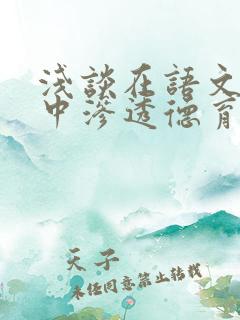 浅談在語文
中滲透德育
天子
未经同意禁止转载